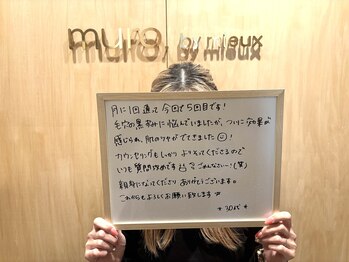 muro, by mieux
月に1回通って今回で5回目です!
毛穴の黒ずみに悩んでいましたが、ついに効果が
感じられ、肌のツヤがでてきました!
カウンセリングもしっかりよりそってくださるので
いつも質問攻めです ごめんなさいー!(笑)
親身になってくださりありがとうございます。
これからもよろしくお願い致します
*30代*